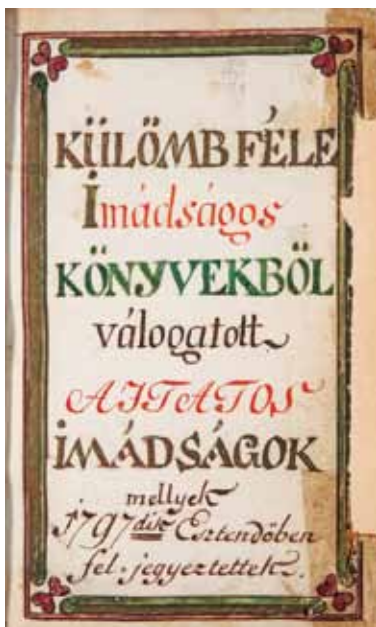 KÜLÖMBFÉLE
Imádságos
KÖNYVEKBÖL
válogatott
AJTATOS
IMÁDSÁGOK
mellyek
1797dik Esztendőben
fel-jegyeztettek.